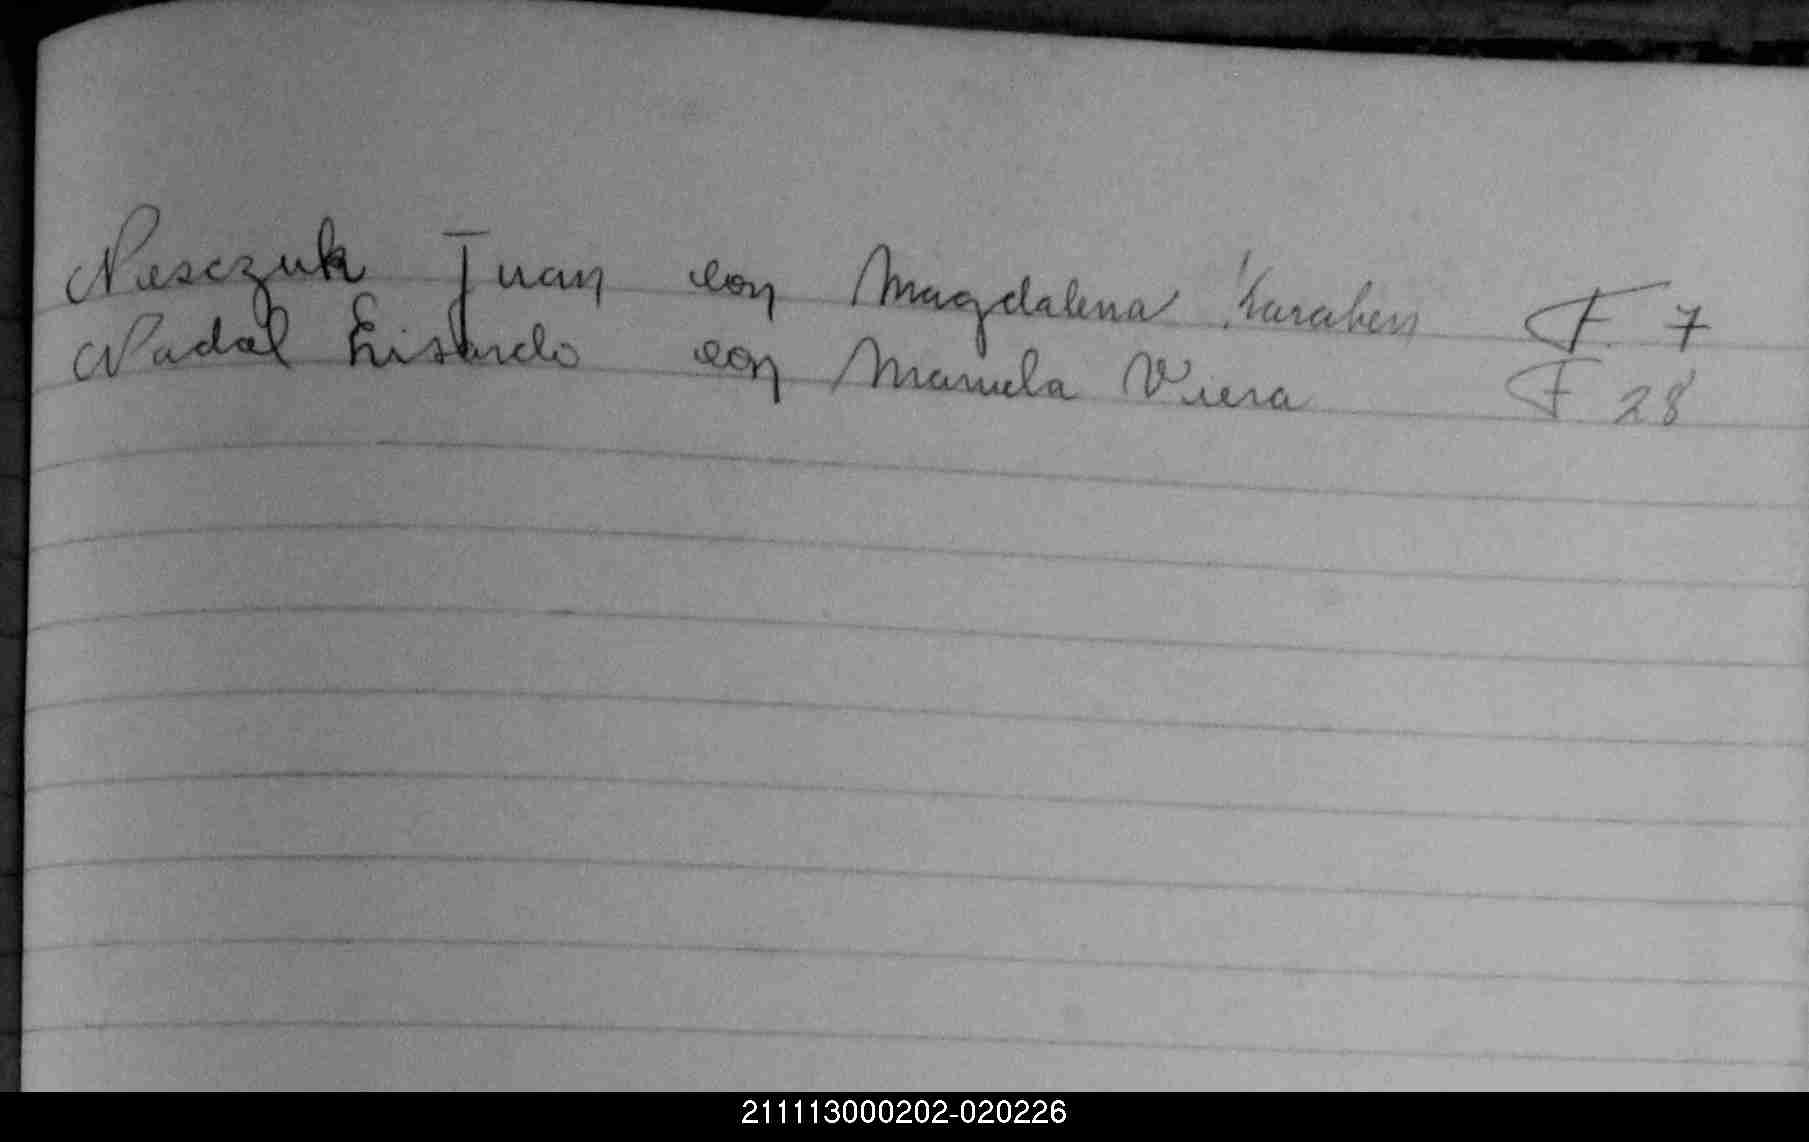 Niesczuk Juan con Magdalena F. 7
Nadal Lisardo con Manuela Viera F 28
211113000202-020226